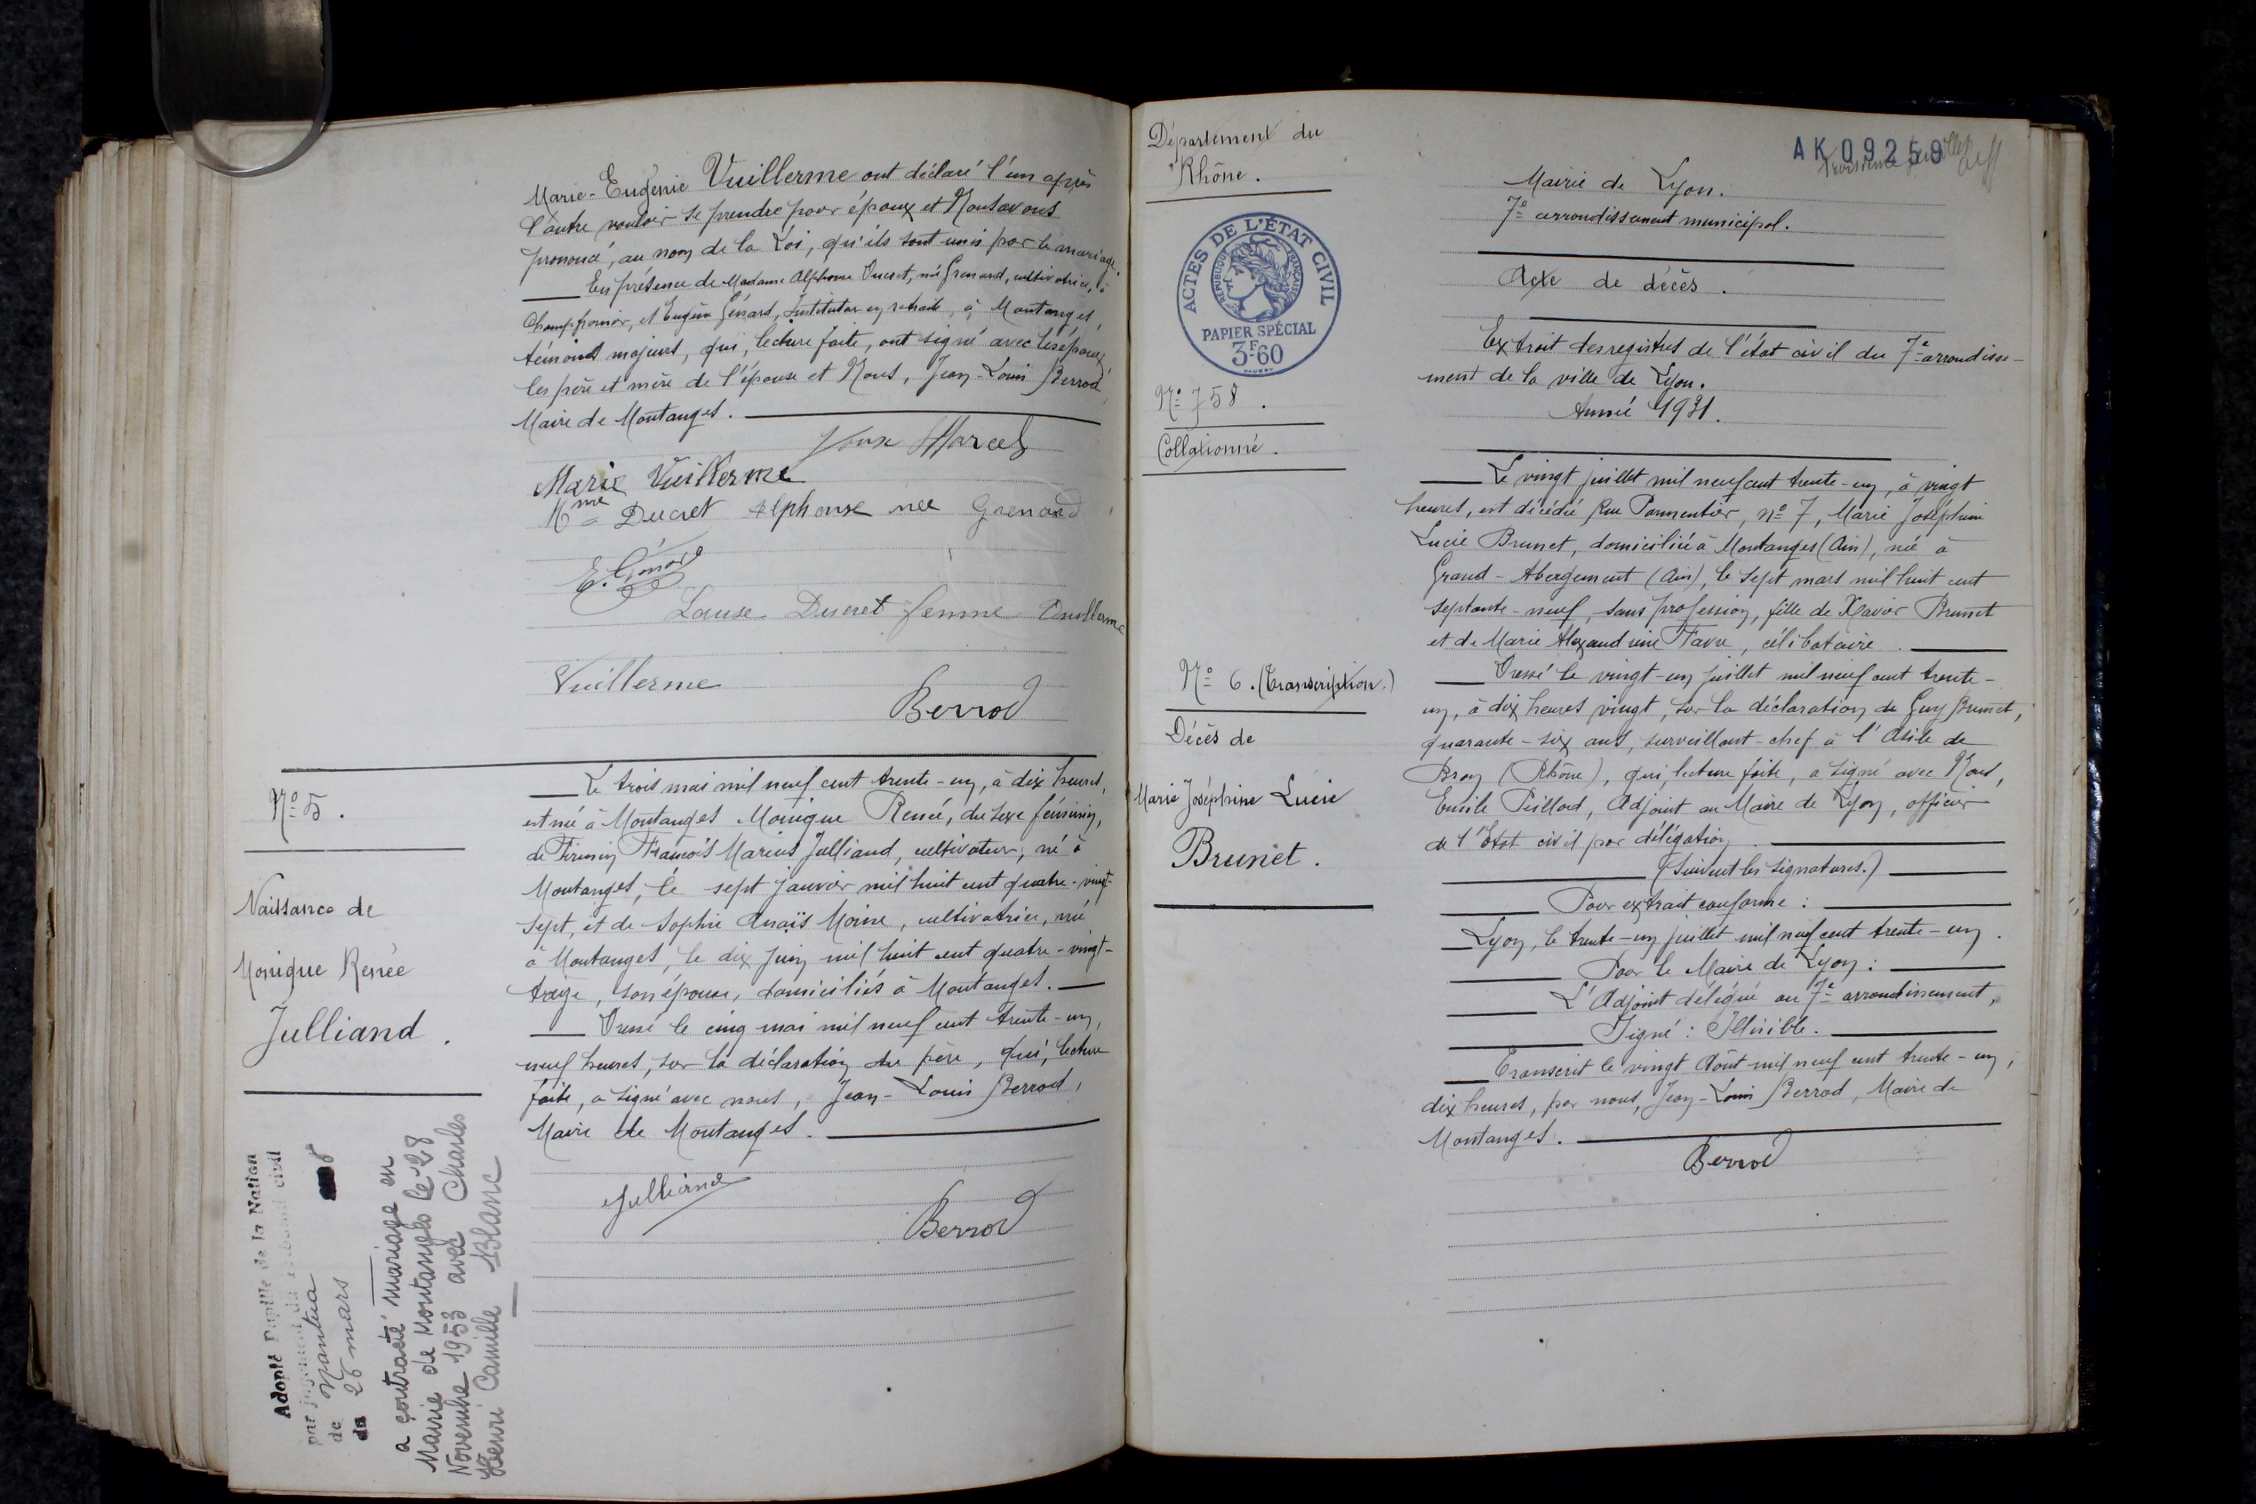 Marie-Eugénie Vuillerme ont déclaré l'un après
l'autre vouloir se prendre pour époux et Nous avons
prononcé, au nom de la Loi, qu'ils sont unis par le mariage.
En présence de Madame Alphonse Ducret, née Grenard, cultivatrice, à
Champfromier, et Eugène Génard, Instituteur en retraite, à Montanges,
témoins majeurs, qui, lecture faite, ont signé avec les époux,
les père et mère de l'épouse et Nous, Jean-Louis Berrod,
Maire de Montanges.
Marcel
Marie Vuillerme
Mme Ducret Alphonse née Grenard
E. Génard
Louise Ducret femme Vuillerme
Vuillerme
Berrod
No 5.
Naissance de
Monique Renée
Julliand.
Le trois mai mil neuf cent trente-un, à dix heures,
est née à Montanges Monique Renée, du sexe féminin,
de Firmin François Marius Julliand, cultivateur, né à
Montanges, le sept janvier mil huit cent quatre-vingt-
sept, et de Sophie Anaïs Moine, cultivatrice, née
à Montanges, le dix juin mil huit cent quatre-vingt-
treize, son épouse, domiciliés à Montanges.
Dressé le cinq mai mil neuf cent trente-un,
neuf heures, sur la déclaration du père, qui, lecture
faite, a signé avec nous, Jean-Louis Berrod,
Maire de Montanges.
Julliand
Berrod
Adopté Pupille de la Nation
par jugement du tribunal civil
de Nantua
du 26 mars
a contracté mariage en
Mairie de Montanges le 28
Novembre 1953 avec Charles
Henri Camille Blanc
Département du
Rhône.
ACTES DE L'ÉTAT CIVIL
RÉPUBLIQUE FRANÇAISE
PAPIER SPÉCIAL
3F60
No 758.
Collationné.
No 6. (Transcription.)
Décès de
Marie Joséphine Lucie
Brunet.
AK 09259
Mairie de Lyon.
7e arrondissement municipal.
Acte de décès.
Extrait des registres de l'état civil du 7e arrondisse-
ment de la ville de Lyon.
Année 1931.
Le vingt juillet mil neuf cent trente-un, à vingt
heures, est décédée Rue Parmentier, no 7, Marie Joséphine
Lucie Brunet, domiciliée à Montanges (Ain), née à
Grand-Abergement (Ain), le sept mars mil huit cent
septante-neuf, sans profession, fille de Xavier Brunet
et de Marie Alexandrine Favre, célibataire.
Dressé le vingt-un juillet mil neuf cent trente-
un, à dix heures vingt, sur la déclaration de Guy Brunet,
quarante-six ans, surveillant-chef à l'Asile de
Bron (Rhône), qui lecture faite, a signé avec Nous,
Emile Peillod, Adjoint au Maire de Lyon, officier
de l'Etat civil par délégation.
(Suivent les signatures.)
Pour extrait conforme :
Lyon, le trente-un juillet mil neuf cent trente-un.
Pour le Maire de Lyon :
L'Adjoint délégué au 7e arrondissement,
Signé : Illisible.
Transcrit le vingt Août mil neuf cent trente-un,
dix heures, par nous, Jean-Louis Berrod, Maire de
Montanges.
Berrod